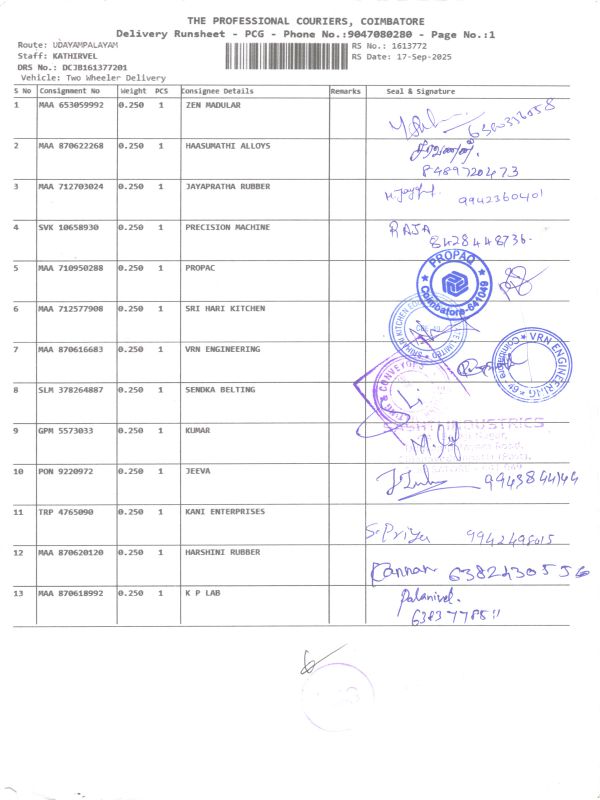 THE PROFESSIONAL COURIERS, COIMBATORE
Delivery Runsheet - PCG - Phone No.:9047080280 - Page No.:1
Route: UDAYAMPALAYAM RS No.: 1613772
Staff: KATHIRVEL RS Date: 17-Sep-2025
DRS No.: DCJB161377201
Vehicle: Two Wheeler Delivery
S No Consignment No Weight PCS Consignee Details Remarks Seal & Signature
1 MAA 653059992 0.250 1 ZEN MADULAR
2 MAA 870622268 0.250 1 HAASUMATHI ALLOYS சரவணன்.
8489720473
3 MAA 712703024 0.250 1 JAYAPRATHA RUBBER 9942360401
4 SVK 10658930 0.250 1 PRECISION MACHINE RAJA
8428448736.
5 MAA 710950288 0.250 1 PROPAC PROPAQ
Coimbatore-641049
6 MAA 712577908 0.250 1 SRI HARI KITCHEN
7 MAA 870616683 0.250 1 VRN ENGINEERING VRN ENGINEERING
8 SLM 378264887 0.250 1 SENDKA BELTING & CONVEYOR
9 GPM 5573033 0.250 1 KUMAR INDUSTRIES
10 PON 9220972 0.250 1 JEEVA
11 TRP 4765090 0.250 1 KANI ENTERPRISES S.Priya
12 MAA 870620120 0.250 1 HARSHINI RUBBER Kannan 6382430556
13 MAA 870618992 0.250 1 K P LAB Palanivel.